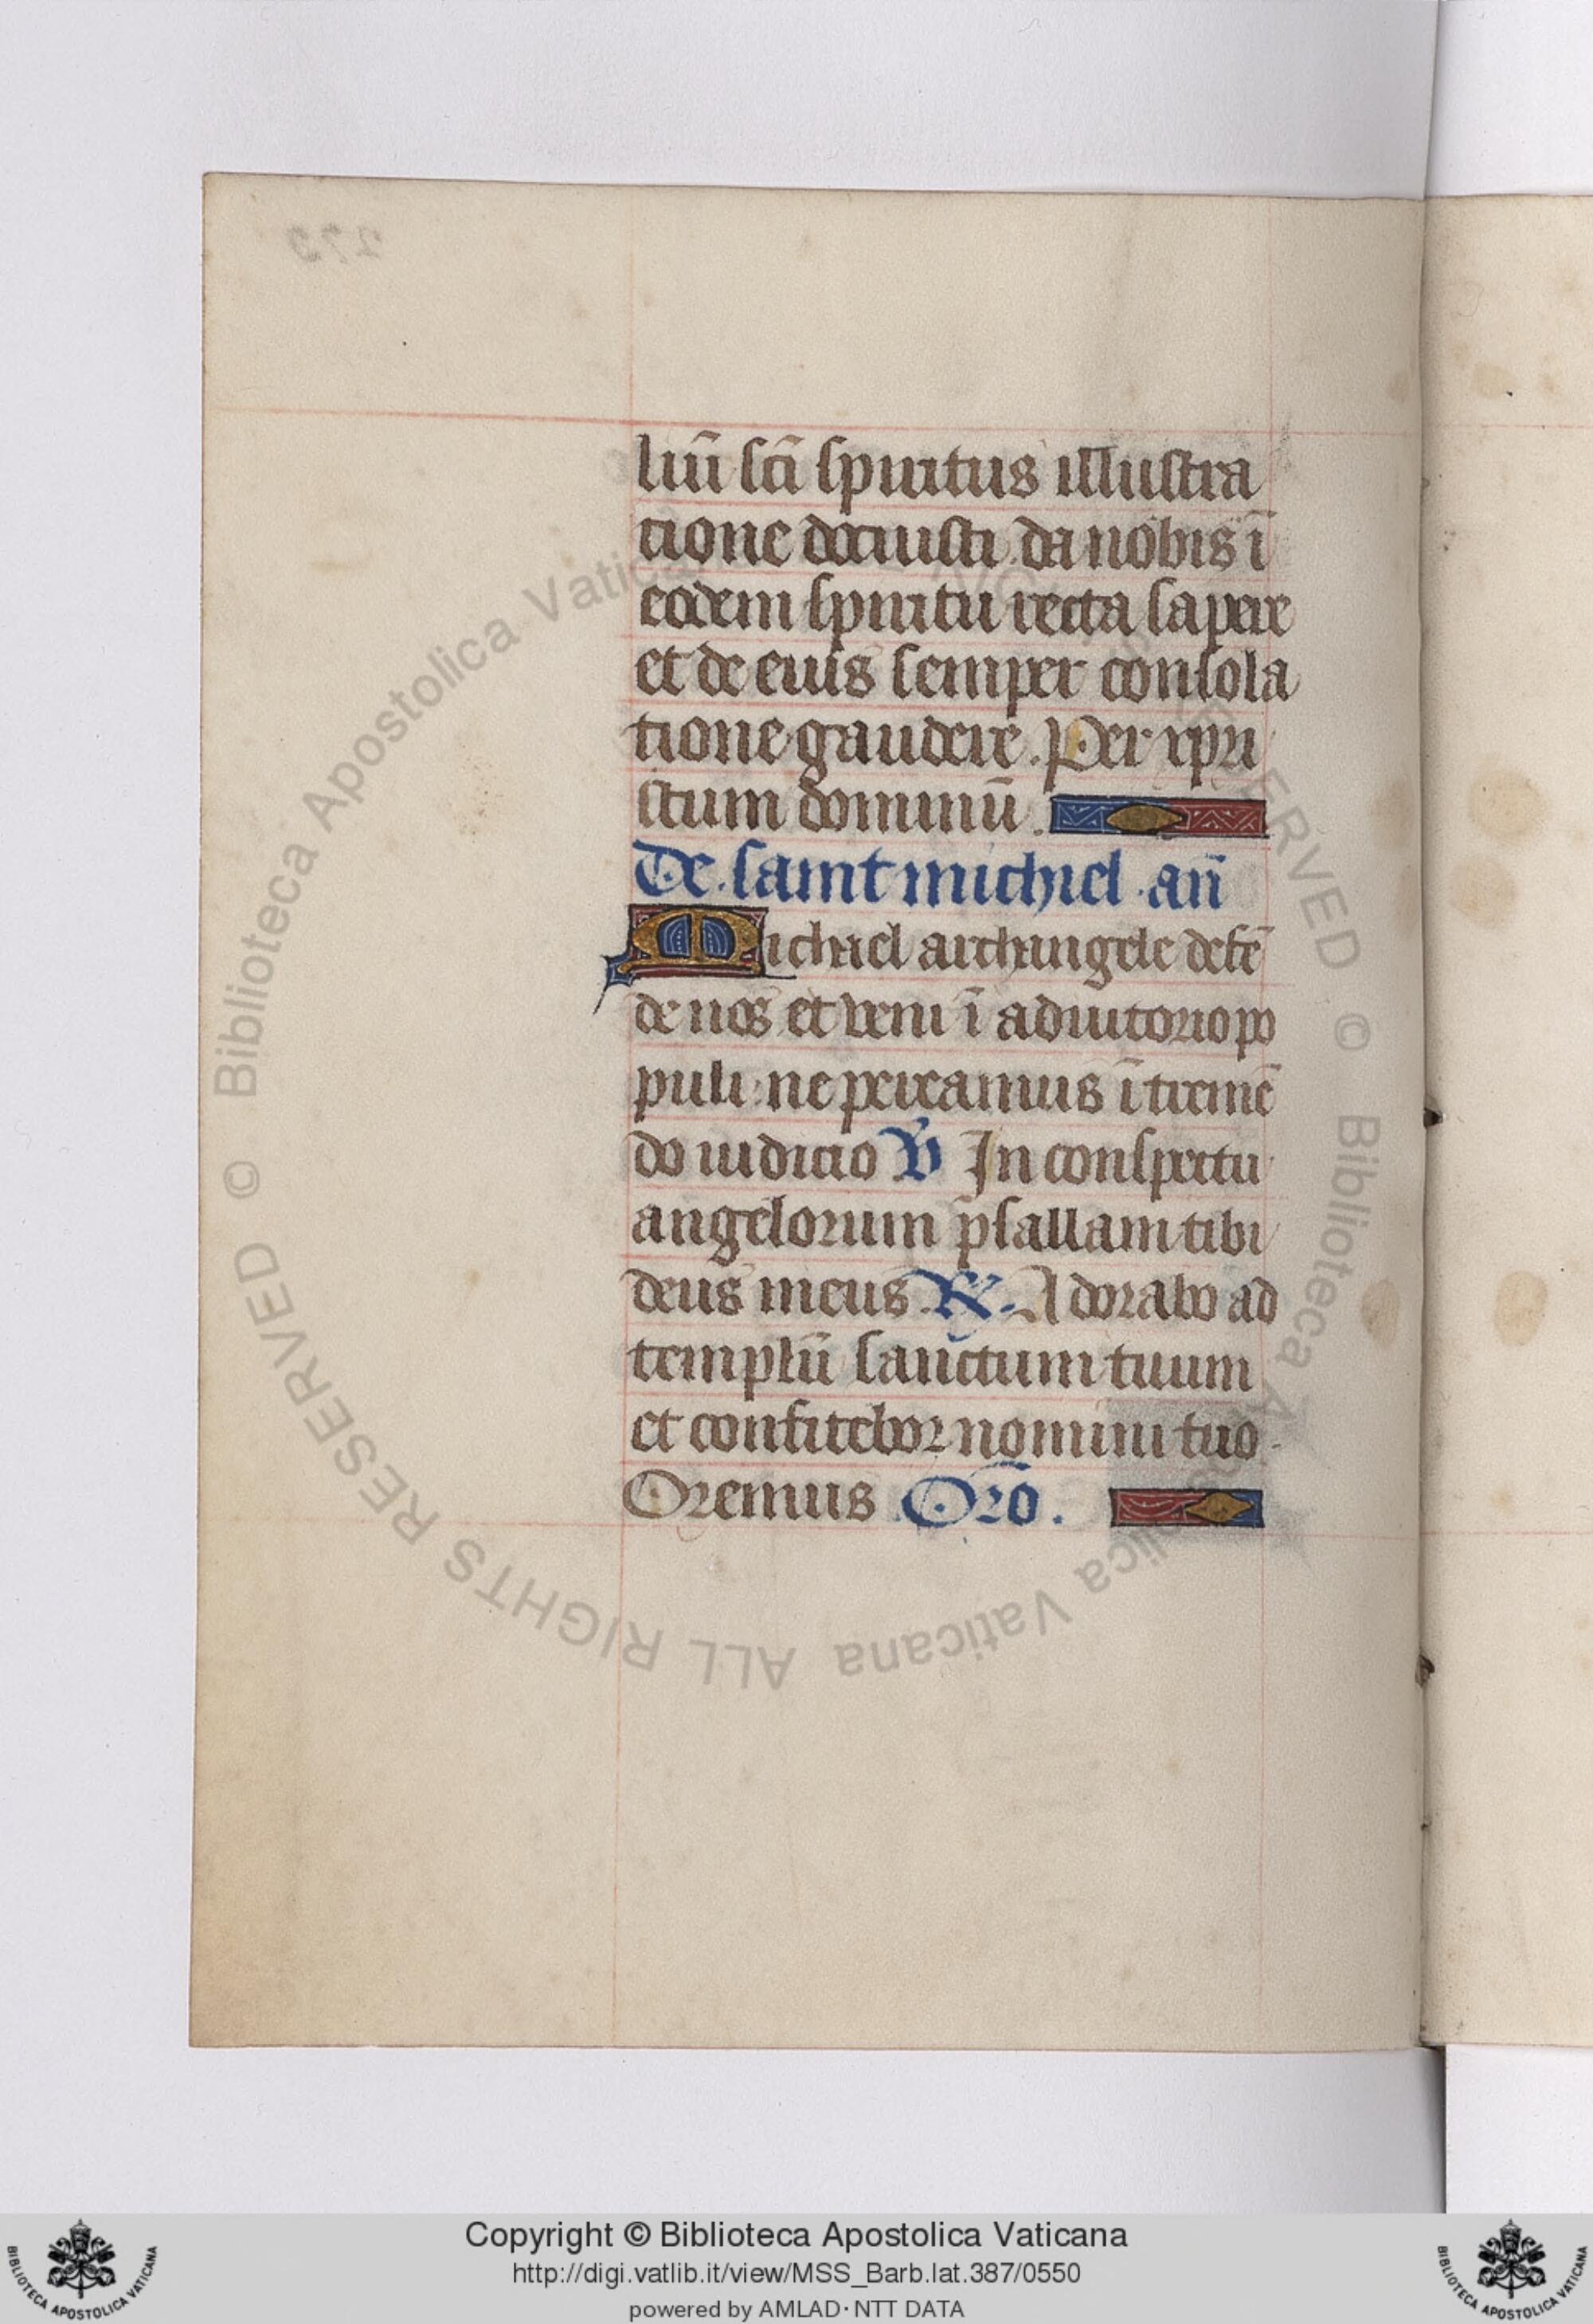 liū sc̄i spiritus illustra
tione docuisti da nobis ī
eodem spiritu recta sapere
et de eius semper consola
tione gaudere. Per xpri
stum dominū.
De saint michiel. an̄
Michael archangele defē
de nos et veni ī adiutorio po
puli ne pereamus ī tremē
do iudicio ℣ In conspectu
angelorum psallam tibi
deus meus ℟. Adorabo ad
templū sanctum tuum
et confitebor nomini tuo.
Oremus. Orō.
273
© Biblioteca Apostolica Vaticana ALL RIGHTS RESERVED © Biblioteca Apostolica Vaticana ALL RIGHTS RESERVED
Copyright © Biblioteca Apostolica Vaticana
http://digi.vatlib.it/view/MSS_Barb.lat.387/0550
powered by AMLAD·NTT DATA
BIBLIOTECA APOSTOLICA VATICANA
BIBLIOTECA APOSTOLICA VATICANA